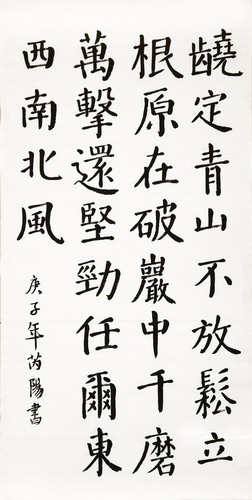 定青山不放鬆立
根原在破巖中千磨
萬擊還堅勁任爾東
西南北風
庚子年芮陽書